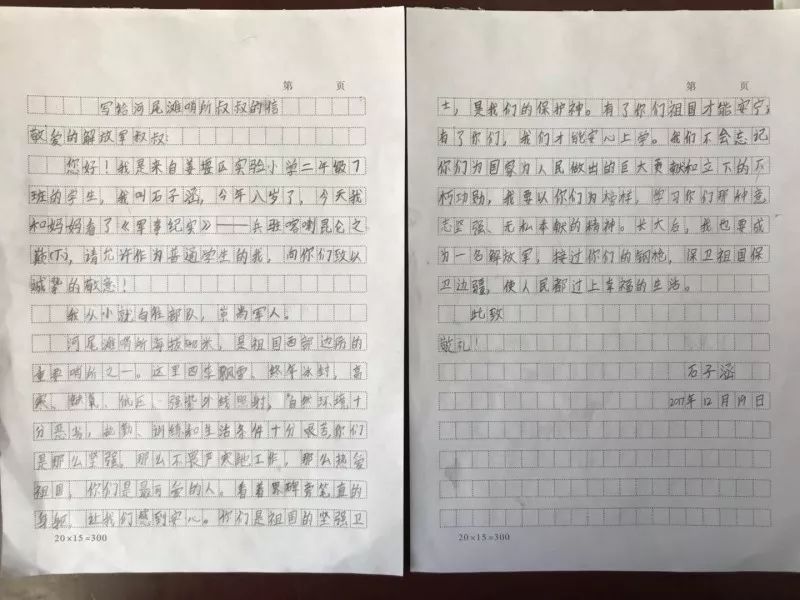 第 页
写给河尾滩哨所叔叔的信
敬爱的解放军叔叔:
您好!我是来自姜堰区实验小学二年级7
班的学生,我叫石子涵,今年八岁了,今天我
和妈妈看了《军事纪实》——兵驻喀喇昆仑之
巅(下),请允许作为普通学生的我,向你们致以
诚挚的敬意!
我从小就向往部队,崇尚军人。
河尾滩哨所海拔 米,是祖国西部边防的
重要哨所之一。这里四季飘雪、终年冰封,高
寒、缺氧、低压、强紫外线照射,自然环境十
分恶劣,执勤、训练和生活条件十分艰苦,你们
是那么坚强,那么不畏严寒地工作,那么热爱
祖国,你们是最可爱的人。看着界碑旁笔直的
身躯,让我们感到安心。你们是祖国的坚强卫
20×15=300
第 页
士,是我们的保护神。有了你们祖国才能安宁,
有了你们,我们才能安心上学。我们不会忘记
你们为国家为人民做出的巨大贡献和立下的不
朽功勋,我要以你们为榜样,学习你们那种意
志坚强、无私奉献的精神。长大后,我也要成
为一名解放军,接过你们的钢枪,保卫祖国保
卫边疆,使人民都过上幸福的生活。
此致
敬礼!
石子涵
2017年12月19日
20×15=300